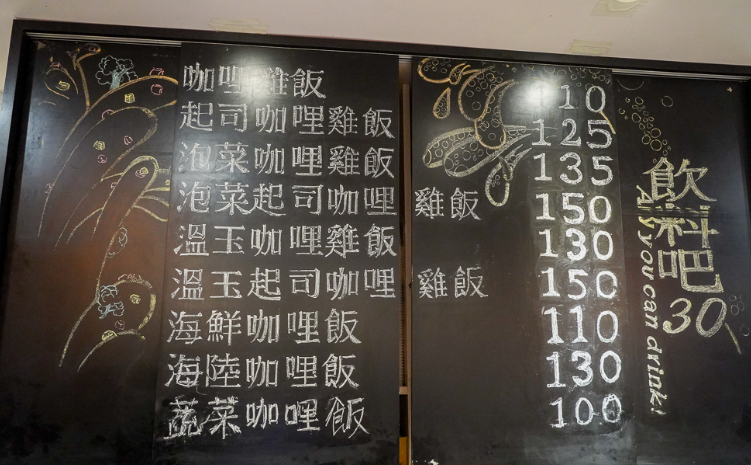 咖哩雞飯 110
起司咖哩雞飯 125
泡菜咖哩雞飯 135
泡菜起司咖哩雞飯 150
溫玉咖哩雞飯 130
溫玉起司咖哩雞飯 150
海鮮咖哩飯 110
海陸咖哩飯 130
蔬菜咖哩飯 100
飲料吧 30
All you can drink!